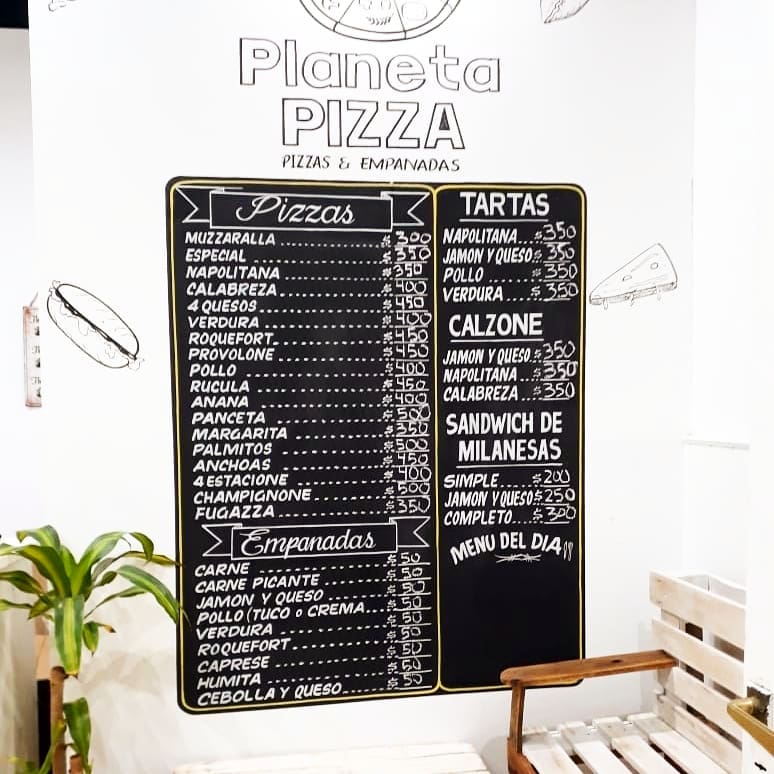 Planeta
PIZZA
PIZZAS & EMPANADAS
Pizzas
MUZZARALLA $300
ESPECIAL $350
NAPOLITANA $350
CALABREZA $400
4 QUESOS $450
VERDURA $400
ROQUEFORT $450
PROVOLONE $450
POLLO $400
RUCULA $450
ANANA $400
PANCETA $500
MARGARITA $350
PALMITOS $500
ANCHOAS $450
4 ESTACIONE $400
CHAMPIGNONE $500
FUGAZZA $350
Empanadas
CARNE $50
CARNE PICANTE $50
JAMON Y QUESO $50
POLLO (TUCO o CREMA... $50
VERDURA $50
ROQUEFORT $50
CAPRESE $50
HUMITA $50
CEBOLLA Y QUESO $50
TARTAS
NAPOLITANA $350
JAMON Y QUESO $350
POLLO $350
VERDURA $350
CALZONE
JAMON Y QUESO $350
NAPOLITANA $350
CALABREZA $350
SANDWICH DE
MILANESAS
SIMPLE $200
JAMON Y QUESO $250
COMPLETO $300
MENU DEL DIA